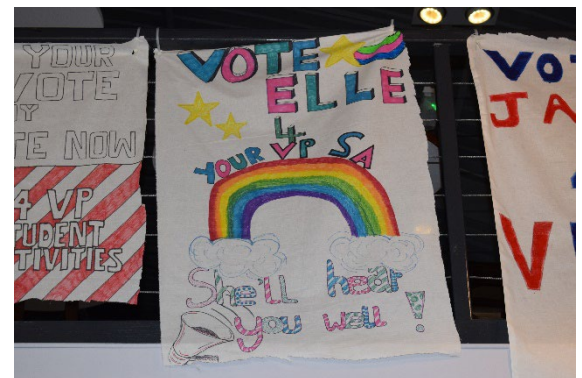 YOUR
VOTE
TE NOW
4 VP
STUDENT
ACTIVITIES
VOTE
ELLE
4
YOUR VP SA
She'll hear
you well!
VO
JA
V